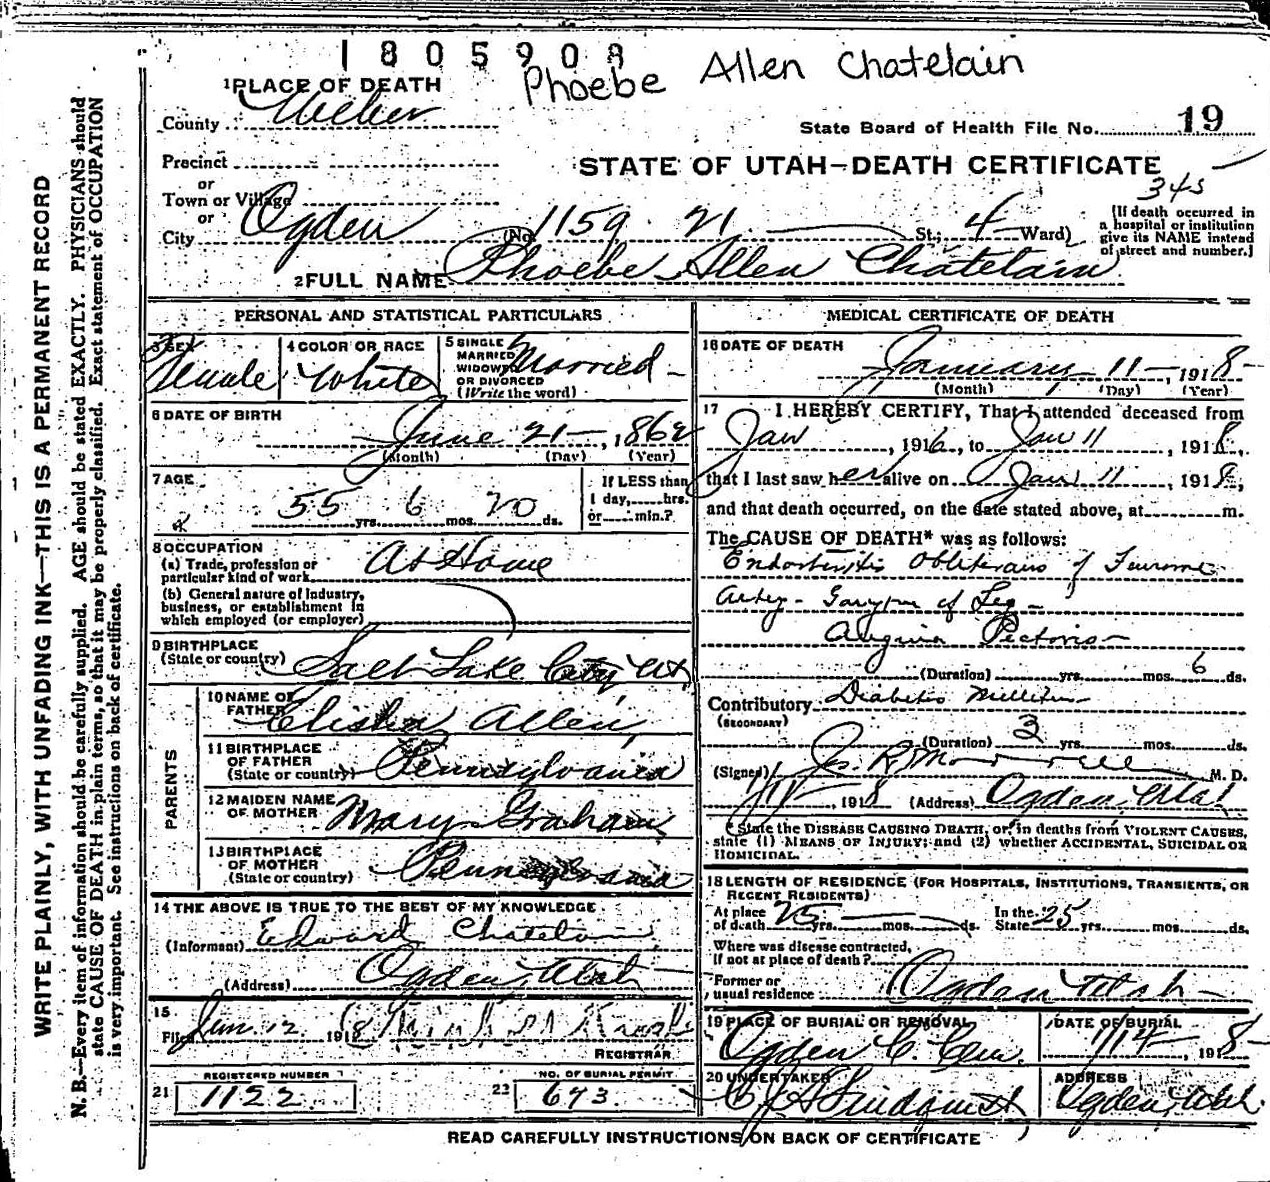 1805908
Phoebe Allen Chatelain
1 PLACE OF DEATH
County Weber
State Board of Health File No. 19
Precinct
STATE OF UTAH—DEATH CERTIFICATE
or
Town or Village
345
or
City Ogden (No. 1159. 21 St.; 4 Ward)
[If death occurred in
a hospital or institution
give its NAME instead
of street and number.]
2 FULL NAME Phoebe Allen Chatelain
PERSONAL AND STATISTICAL PARTICULARS
3 SEX
Female
4 COLOR OR RACE
White
5 SINGLE
MARRIED
WIDOWED
OR DIVORCED
(Write the word)
Married
6 DATE OF BIRTH
June 21, 1862
(Month) (Day) (Year)
7 AGE
55 yrs. 6 mos. 20 ds.
If LESS than
1 day,......hrs.
or......min.?
8 OCCUPATION
(a) Trade, profession or
particular kind of work
At Home
(b) General nature of Industry,
business, or establishment in
which employed (or employer)
9 BIRTHPLACE
(State or country) Salt Lake City Ut
PARENTS
10 NAME OF
FATHER Elisha Allen
11 BIRTHPLACE
OF FATHER
(State or country) Pennsylvania
12 MAIDEN NAME
OF MOTHER Mary Graham
13 BIRTHPLACE
OF MOTHER
(State or country) Pennsylvania
14 THE ABOVE IS TRUE TO THE BEST OF MY KNOWLEDGE
(Informant) Edward Chatelain
(Address) Ogden, Utah
15
Filed Jan. 12 1918
REGISTRAR
REGISTERED NUMBER
21 1122
NO. OF BURIAL PERMIT
22 673
MEDICAL CERTIFICATE OF DEATH
16 DATE OF DEATH
January 11, 1918
(Month) (Day) (Year)
17 I HEREBY CERTIFY, That I attended deceased from
Jan, 1916, to Jan 11, 1918,
that I last saw her alive on Jan 11, 1918,
and that death occurred, on the date stated above, at m.
The CAUSE OF DEATH* was as follows:
Obliterans of
of Leg
Angina Pectoris
(Duration) yrs. mos. 6 ds.
Contributory Diabetes Mellitus
(SECONDARY)
(Duration) 3 yrs. mos. ds.
(Signed) M. D.
1/11, 1918 (Address) Ogden, Utah
*State the DISEASE CAUSING DEATH, or, in deaths from VIOLENT CAUSES,
state (1) MEANS OF INJURY; and (2) whether ACCIDENTAL, SUICIDAL OR
HOMICIDAL.
18 LENGTH OF RESIDENCE (FOR HOSPITALS, INSTITUTIONS, TRANSIENTS, OR
RECENT RESIDENTS)
At place
of death 25 yrs. mos. ds.
In the
State 25 yrs. mos. ds.
Where was disease contracted,
if not at place of death?
Former or
usual residence Ogden Utah
19 PLACE OF BURIAL OR REMOVAL
Ogden C. Cem.
DATE OF BURIAL
1/14, 1918
20 UNDERTAKER
Lindquist
ADDRESS
Ogden, Utah.
READ CAREFULLY INSTRUCTIONS ON BACK OF CERTIFICATE
WRITE PLAINLY, WITH UNFADING INK—THIS IS A PERMANENT RECORD
N. B.—Every item of information should be carefully supplied. AGE should be stated EXACTLY. PHYSICIANS should
state CAUSE OF DEATH in plain terms, so that it may be properly classified. Exact statement of OCCUPATION
is very important. See instructions on back of certificate.